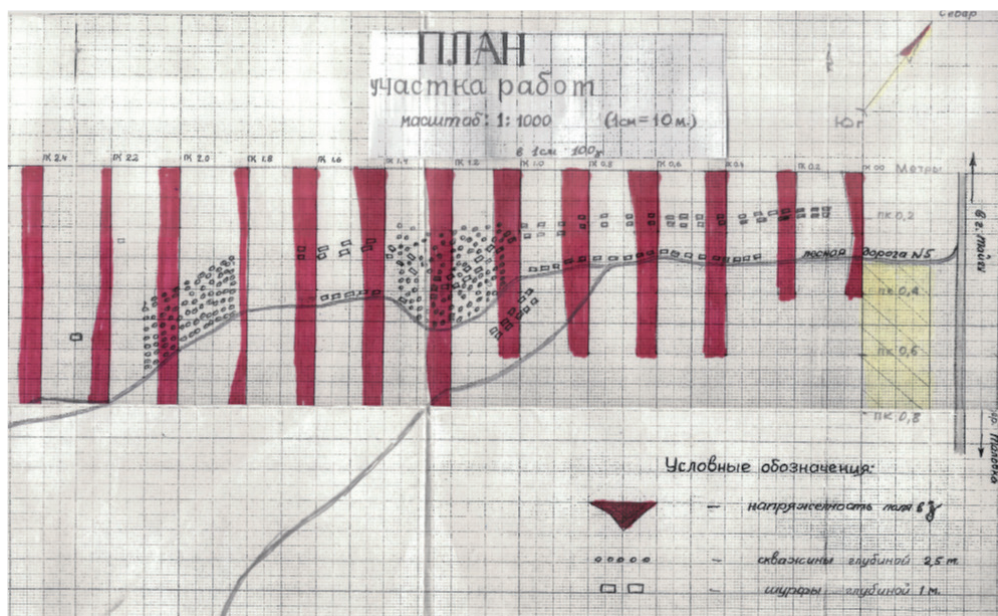 Север
ПЛАН
участка работ
масштаб: 1: 1000 (1см=10м.)
в 1см
Юг
ПК 2.4 ПК 2.2 ПК 2.0 ПК 1.8 ПК 1.6 ПК 1.4 ПК 1.2 ПК 1.0 ПК 0.6 ПК 0.4 ПК 0.2 ПК 00 Метры
пк 0,2
лесная дорога №5
пк 0,4
пк 0,6
пк 0,8
Условные обозначения:
– напряженность поля в γ
– скважины глубиной 2,5 м.
– шурфы глубиной 1 м.